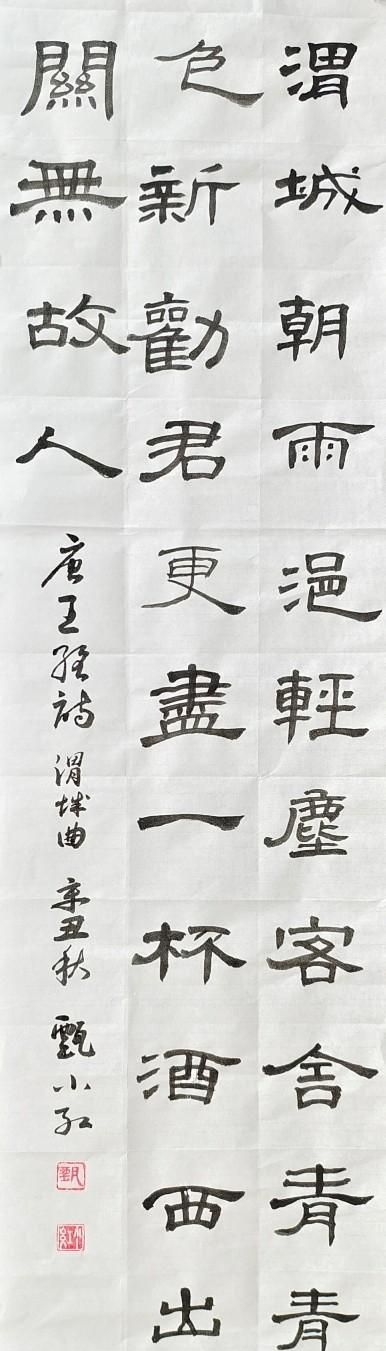 渭城朝雨浥輕塵客舍青青
色新勸君更盡一杯酒西出
關無故人
唐王維詩 渭城曲 辛丑秋 甄小紅
甄